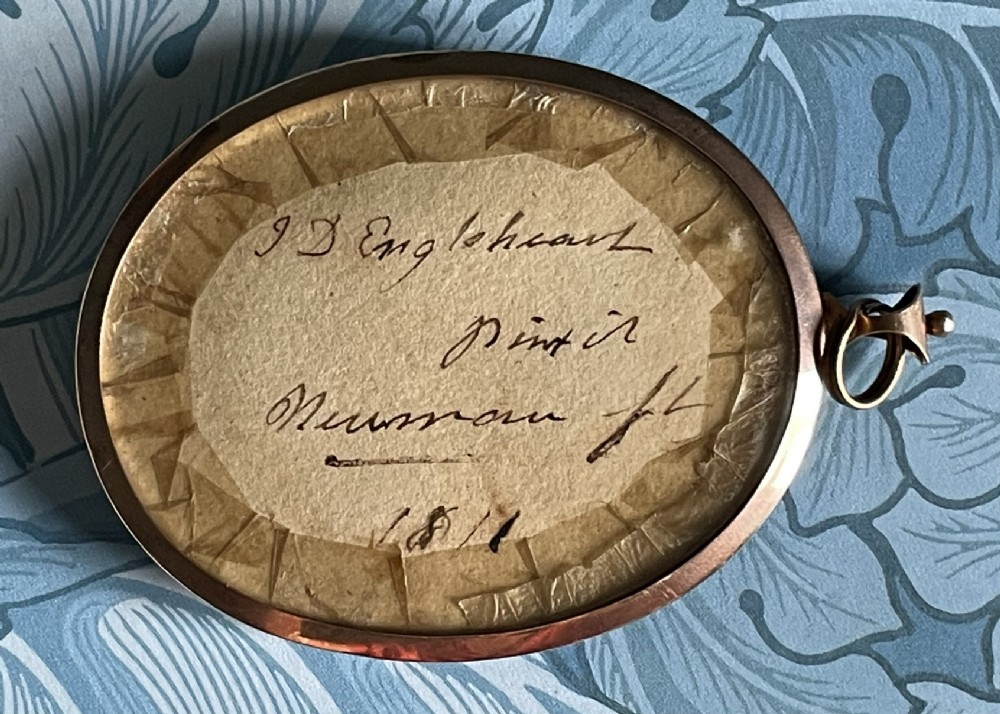 J D Engleheart
pinxit
Newman St
1811